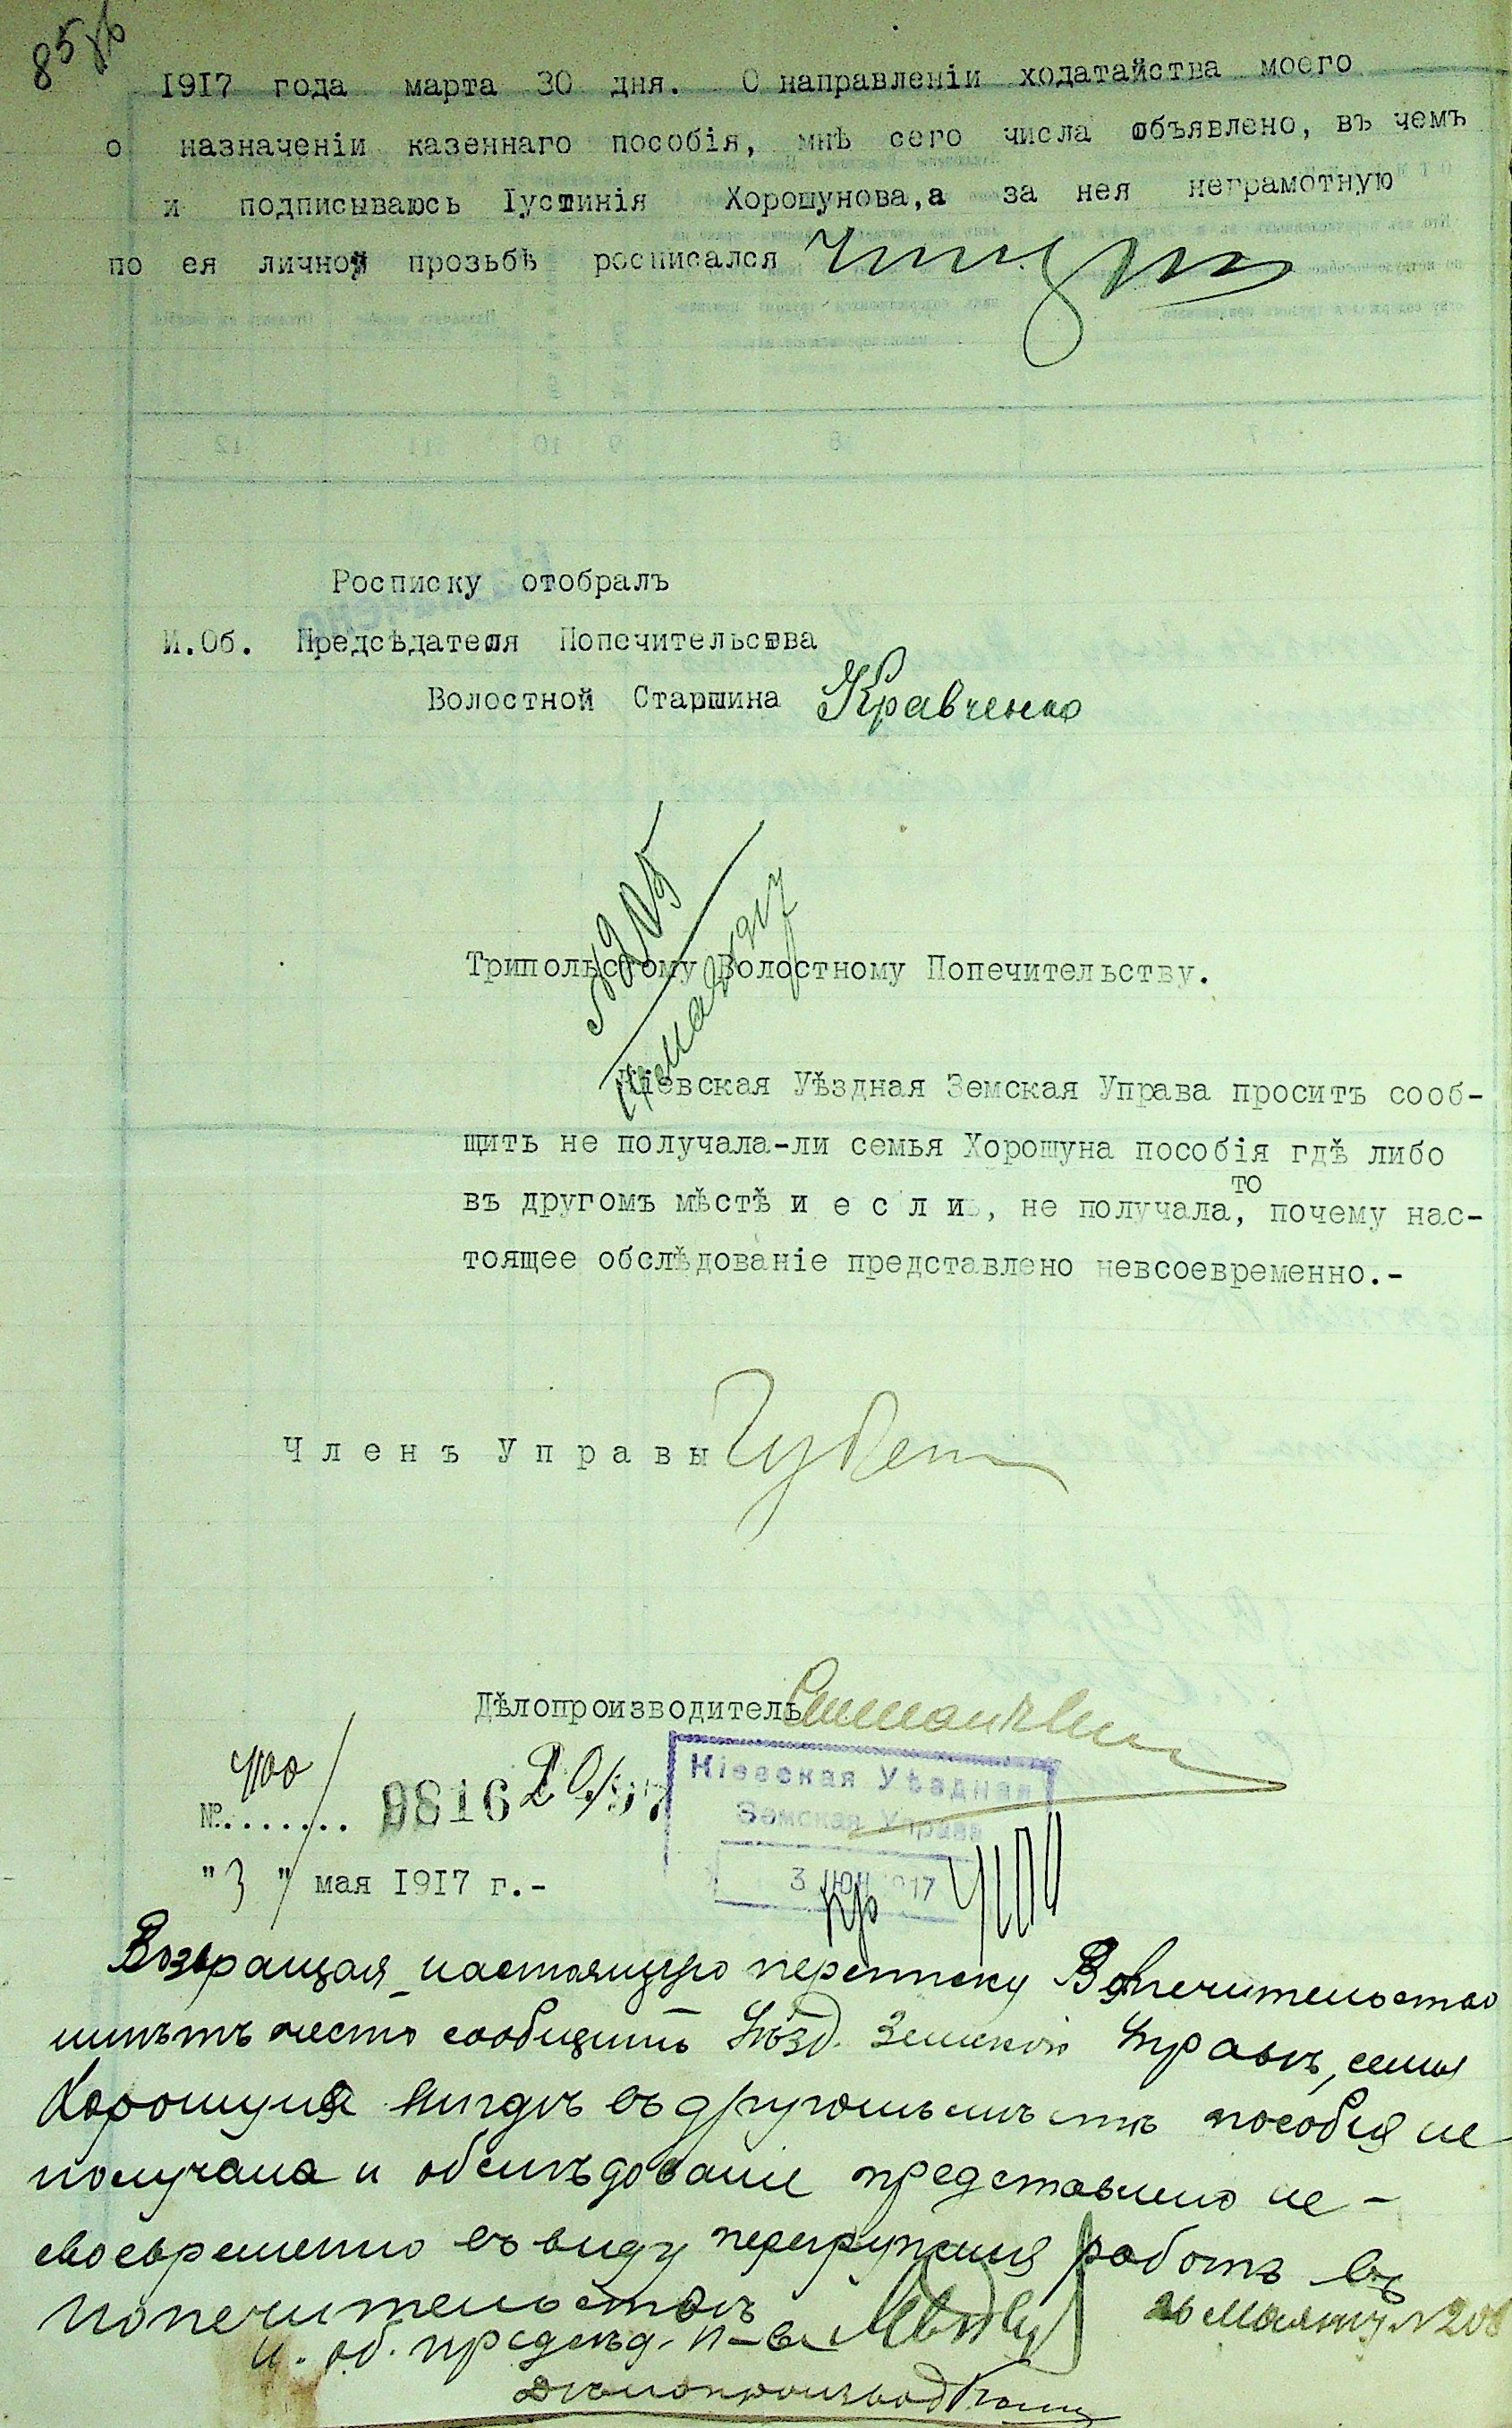 85об
1917 года марта 30 дня. О направленіи ходатайства моего
о назначеніи казеннаго пособія, мнѣ сего числа объявлено, въ чемъ
и подписываюсь Іустинія Хорошунова,а за нея неграмотную
по ея личной прозьбѣ росписался
Росписку отобралъ
И.Об. Предсѣдателя Попечительства
Волостной Старшина Кравченко
Трипольскому Волостному Попечительству.
Кіевская Уѣздная Земская Управа проситъ сооб-
щить не получала-ли семья Хорошуна пособія гдѣ либо
то
въ другомъ мѣстѣ и е с л и , не получала, почему нас-
тоящее обслѣдованіе представлено невсоевременно.-
Ч л е н ъ У п р а в ы
Дѣлопроизводитель
№....... 9816
"3" мая 1917 г.-
Кіевская Уѣздная
Земская Управа
3 ІЮН 1917
Возвращая настоящую переписку Попечительство
имѣетъ честь сообщить Уѣзд. Земской Управѣ, семья
Хорошуна нигдѣ въ другомъ мѣстѣ пособія не
получала и обслѣдованіе представлено не-
своевременно въ виду перегруженія работъ въ
попечительствѣ
И. об. предсѣд. П-ва
26 мая 1917 №208
Дѣлопроизвод